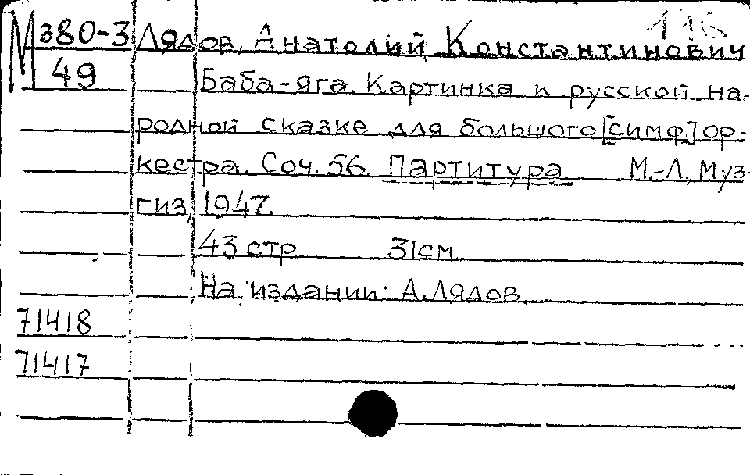 116
М з80-3 Лядов, Анатолий Константинович
49 Баба-яга. Картинка к русской на-
родной сказке для большого [симф.] ор-
кестра. Соч. 56. Партитура М.-Л, Муз-
гиз, 1947.
43 стр 31см
На издании: А. Лядов.
71418
71417